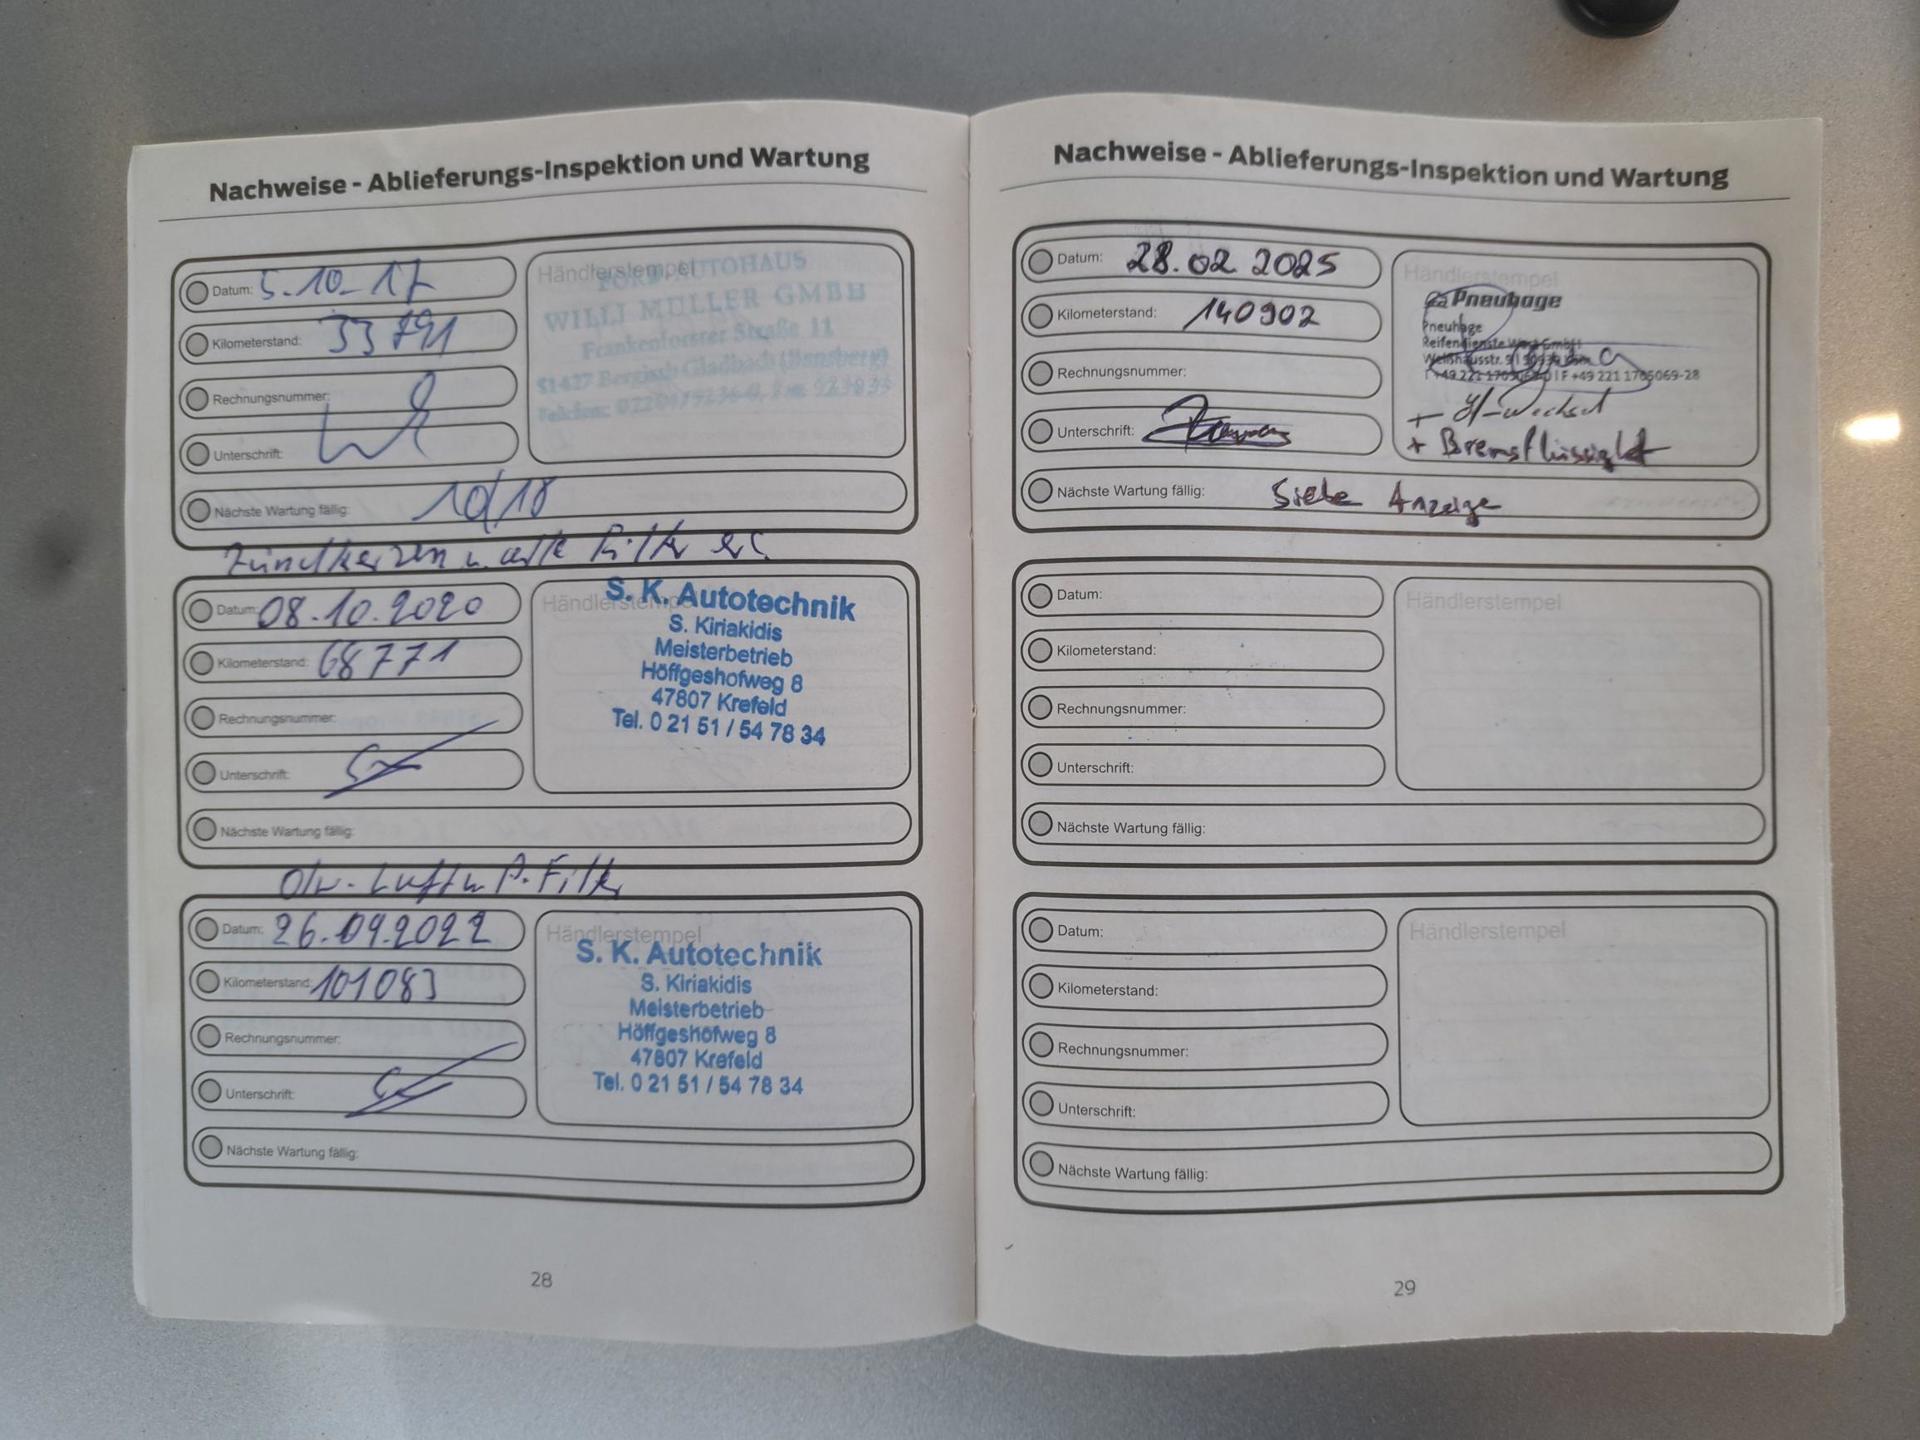 Nachweise - Ablieferungs-Inspektion und Wartung
Datum: 5.10-17
Kilometerstand: 33791
Rechnungsnummer:
Unterschrift:
Nächste Wartung fällig: 10/18
Händlerstempel
FORD AUTOHAUS
WILLI MÜLLER GMBH
Frankenforster Straße 11
51427 Bergisch Gladbach (Bensberg)
Telefon:
Zündkerzen u. alle Filter
Datum: 08.10.2020
Kilometerstand: 68771
Rechnungsnummer:
Unterschrift:
Nächste Wartung fällig:
Händlerstempel
S. K. Autotechnik
S. Kiriakidis
Meisterbetrieb
Höffgeshofweg 8
47807 Krefeld
Tel. 0 21 51 / 54 78 34
Luft u P. Filter
Datum: 26.09.2022
Kilometerstand: 101083
Rechnungsnummer:
Unterschrift:
Nächste Wartung fällig:
Händlerstempel
S. K. Autotechnik
S. Kiriakidis
Meisterbetrieb
Höffgeshofweg 8
47807 Krefeld
Tel. 0 21 51 / 54 78 34
28
Nachweise - Ablieferungs-Inspektion und Wartung
Datum: 28.02 2025
Kilometerstand: 140902
Rechnungsnummer:
Unterschrift:
Nächste Wartung fällig: Siehe Anzeige
Händlerstempel
Pneuhage
Pneuhage
Reifendienste West GmbH
Weißhausstr.
F +49 221 1705069-28
+ Öl-Wechsel
+ Bremsflüssigkt
Datum:
Kilometerstand:
Rechnungsnummer:
Unterschrift:
Nächste Wartung fällig:
Händlerstempel
Datum:
Kilometerstand:
Rechnungsnummer:
Unterschrift:
Nächste Wartung fällig:
Händlerstempel
29